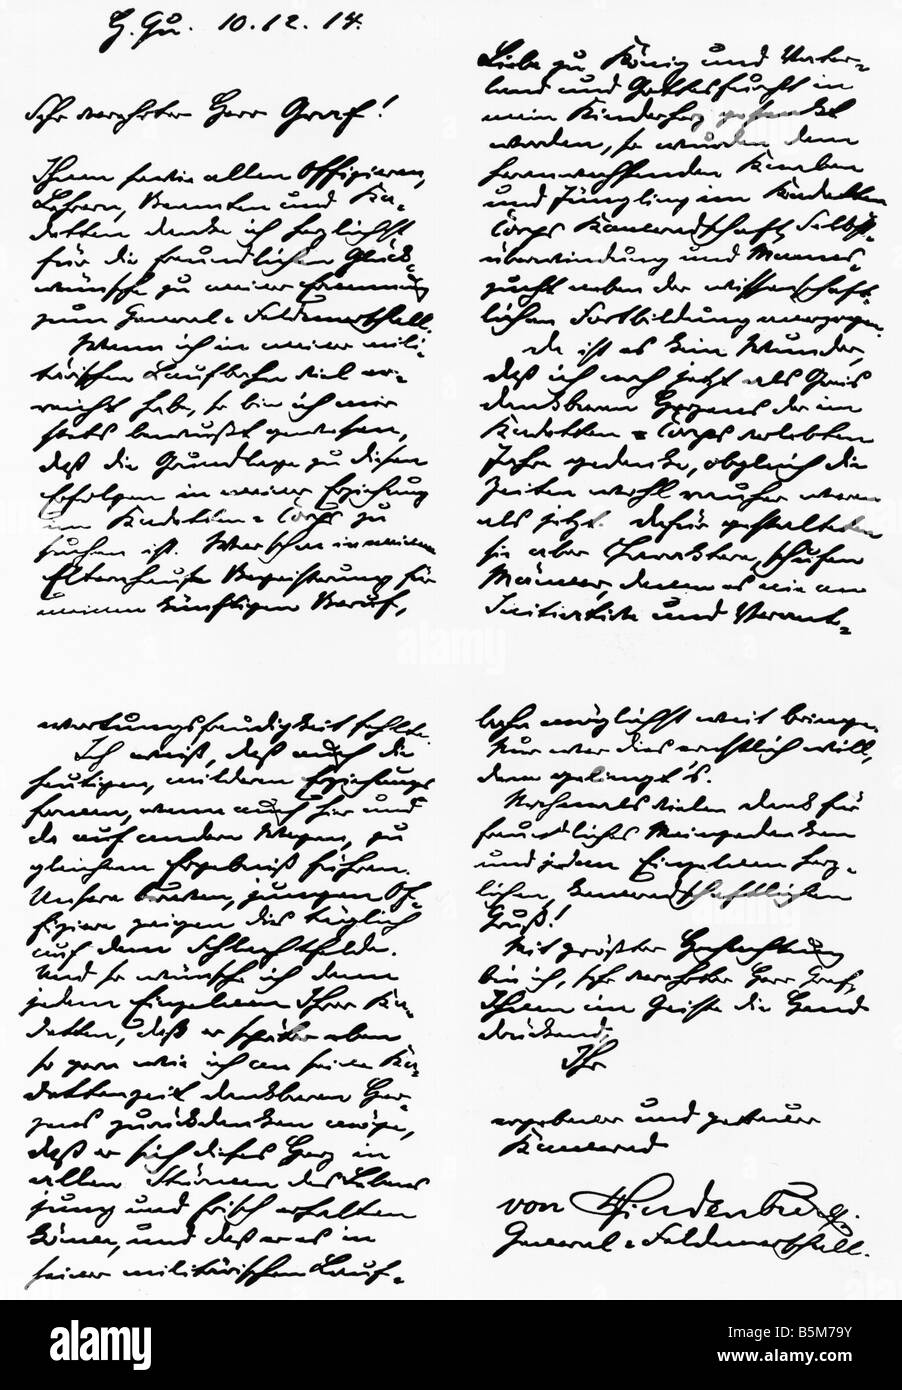 H. Qu. 10.12.14.
Sehr verehrter Herr Graf!
Ihnen sowie allen Offizieren,
Lehrern, Beamten und Ka-
detten danke ich herzlichst
für die freundlichen Glück-
wünsche zu meiner Ernennung
zum General-Feldmarschall.
Wenn ich in meiner mili-
tärischen Laufbahn viel er-
reicht habe, so bin ich mir
stets bewußt gewesen,
daß die Grundlage zu diesen
Erfolgen in meiner Erziehung
im Kadetten-Corps zu
suchen ist. War schon in meinem
Elternhause Begeisterung für
meinen künftigen Beruf,
Liebe zu König und Vater-
land und Gottesfurcht in
mein Kinderherz gesenkt
worden, so wurden dem
heranwachsenden Knaben
und Jüngling im Kadetten
Corps Kameradschaft, Selbst-
überwindung und Manns-
zucht neben der wissenschaft-
lichen Fortbildung anerzogen.
Da ist es kein Wunder,
daß ich noch jetzt als Greis
dankbaren Herzens der im
Kadetten-Corps verlebten
Jahre gedenke, obgleich die
Zeiten wohl rauher waren
als jetzt. Dafür gestalteten
sie aber Charaktere, schufen
Männer, denen es nie an
Initiative und Verant-
wortungsfreudigkeit fehlte.
Ich weiß, daß auch die
heutigen, milderen Erziehungs
formen, wenn auch hier und
da auf andern Wegen, zu
gleichem Ergebniß führen.
Unsere braven, jungen Of-
fiziere zeigen dies täglich
auf dem Schlachtfelde.
Und so wünsche ich denn
jedem Einzelnen Ihrer Ka-
detten, daß er später eben
so gern wie ich an seine Ka-
dettenzeit dankbaren Her-
zens zurückdenken möge,
daß er sich dieses Herz in
allen Stürmen des Lebens
jung und frisch erhalten
könne, und daß er es in
seiner militärischen Lauf-
bahn möglichst weit bringe.
Nur wer dies ernstlich will,
dem gelingt's.
Nochmals vielen Dank für
freundliches Meingedenken
und jedem Einzelnen herz-
lichen, kameradschaftlichen
Gruß!
Mit größter Hochachtung
bin ich, sehr verehrter Herr Graf,
Ihnen im Geiste die Hand
drückend,
Ihr
ergebener und getreuer
Kamerad
von Hindenburg.
General-Feldmarschall.
alamy
alamy
Image ID: B5M79Y
www.alamy.com